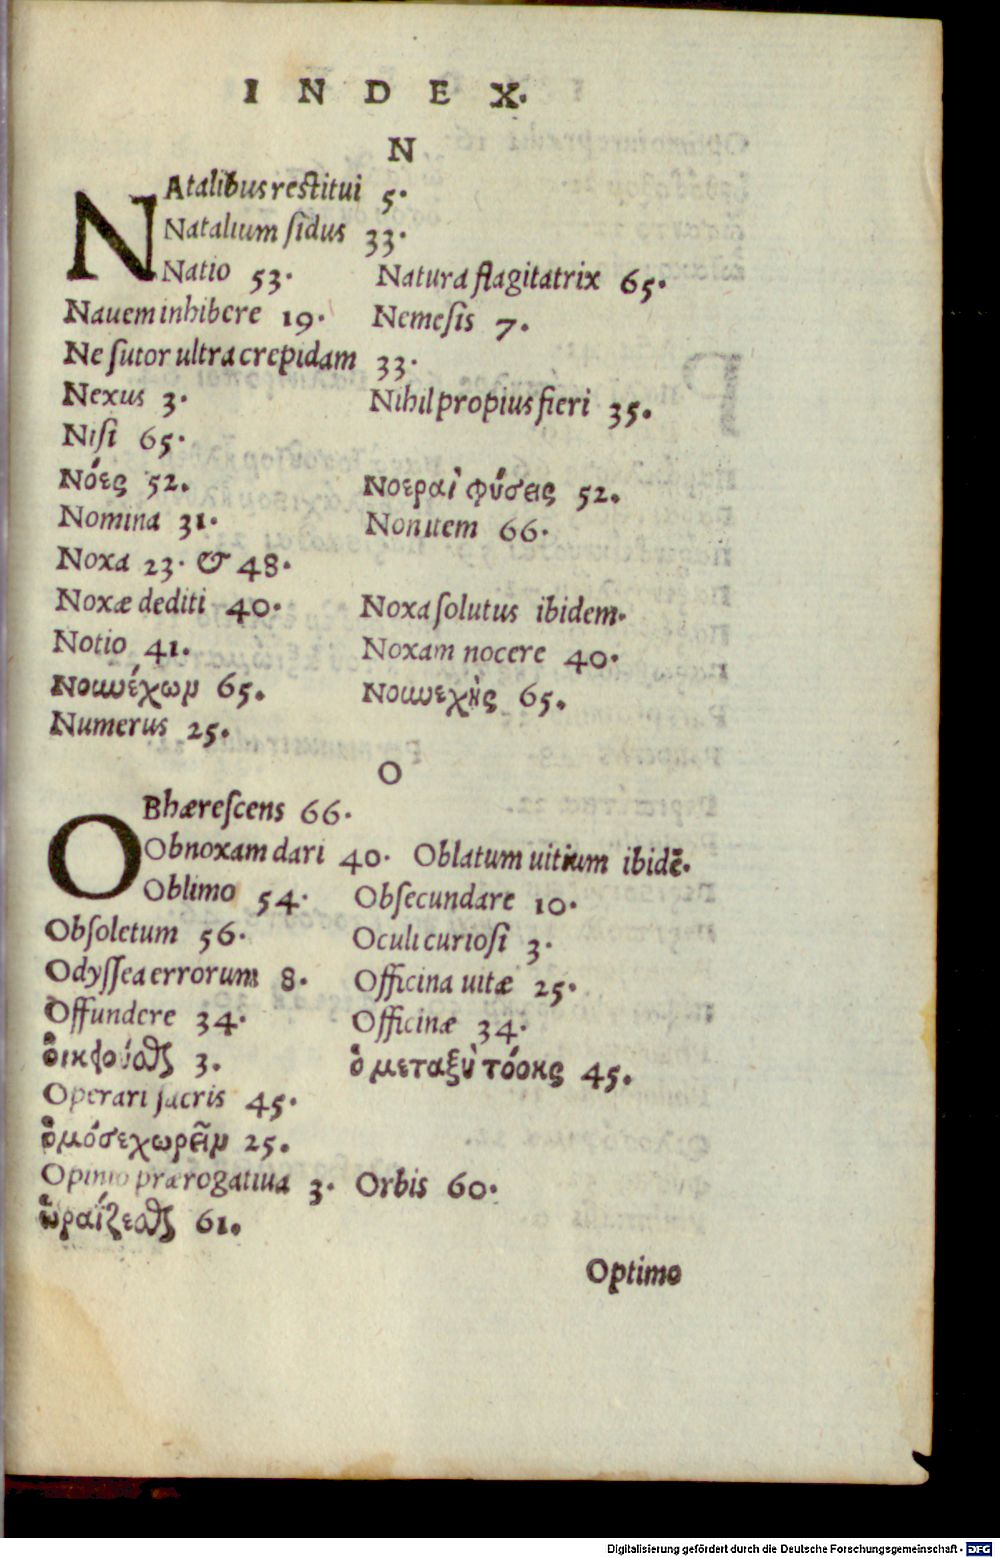 INDEX.
N
NAtalibus restitui 5.
Natalium sidus 33.
Natio 53. Natura flagitatrix 65.
Nauem inhibere 19. Nemesis 7.
Ne sutor ultra crepidam 33.
Nexus 3. Nihil propius fieri 35.
Nisi 65.
Νόες 52. Νοεραὶ φύσεις 52.
Nomina 31. Non item 66.
Noxa 23. & 48.
Noxæ dediti 40. Noxa solutus ibidem.
Notio 41. Noxam nocere 40.
Νουνέχων 65. Νουνεχὴς 65.
Numerus 25.
O
OBhærescens 66.
Ob noxam dari 40. Oblatum uitium ibidē.
Oblimo 54. Obsecundare 10.
Obsoletum 56. Oculi curiosi 3.
Odyssea errorum 8. Officina uitæ 25.
Offundere 34. Officinæ 34.
3. ὁ μεταξὺ 45.
Operari sacris 45.
ὁμόσε χωρεῖν 25.
Opinio prærogatiua 3. Orbis 60.
ὡραΐζεσθαι 61.
Optimo
Digitalisierung gefördert durch die Deutsche Forschungsgemeinschaft - DFG